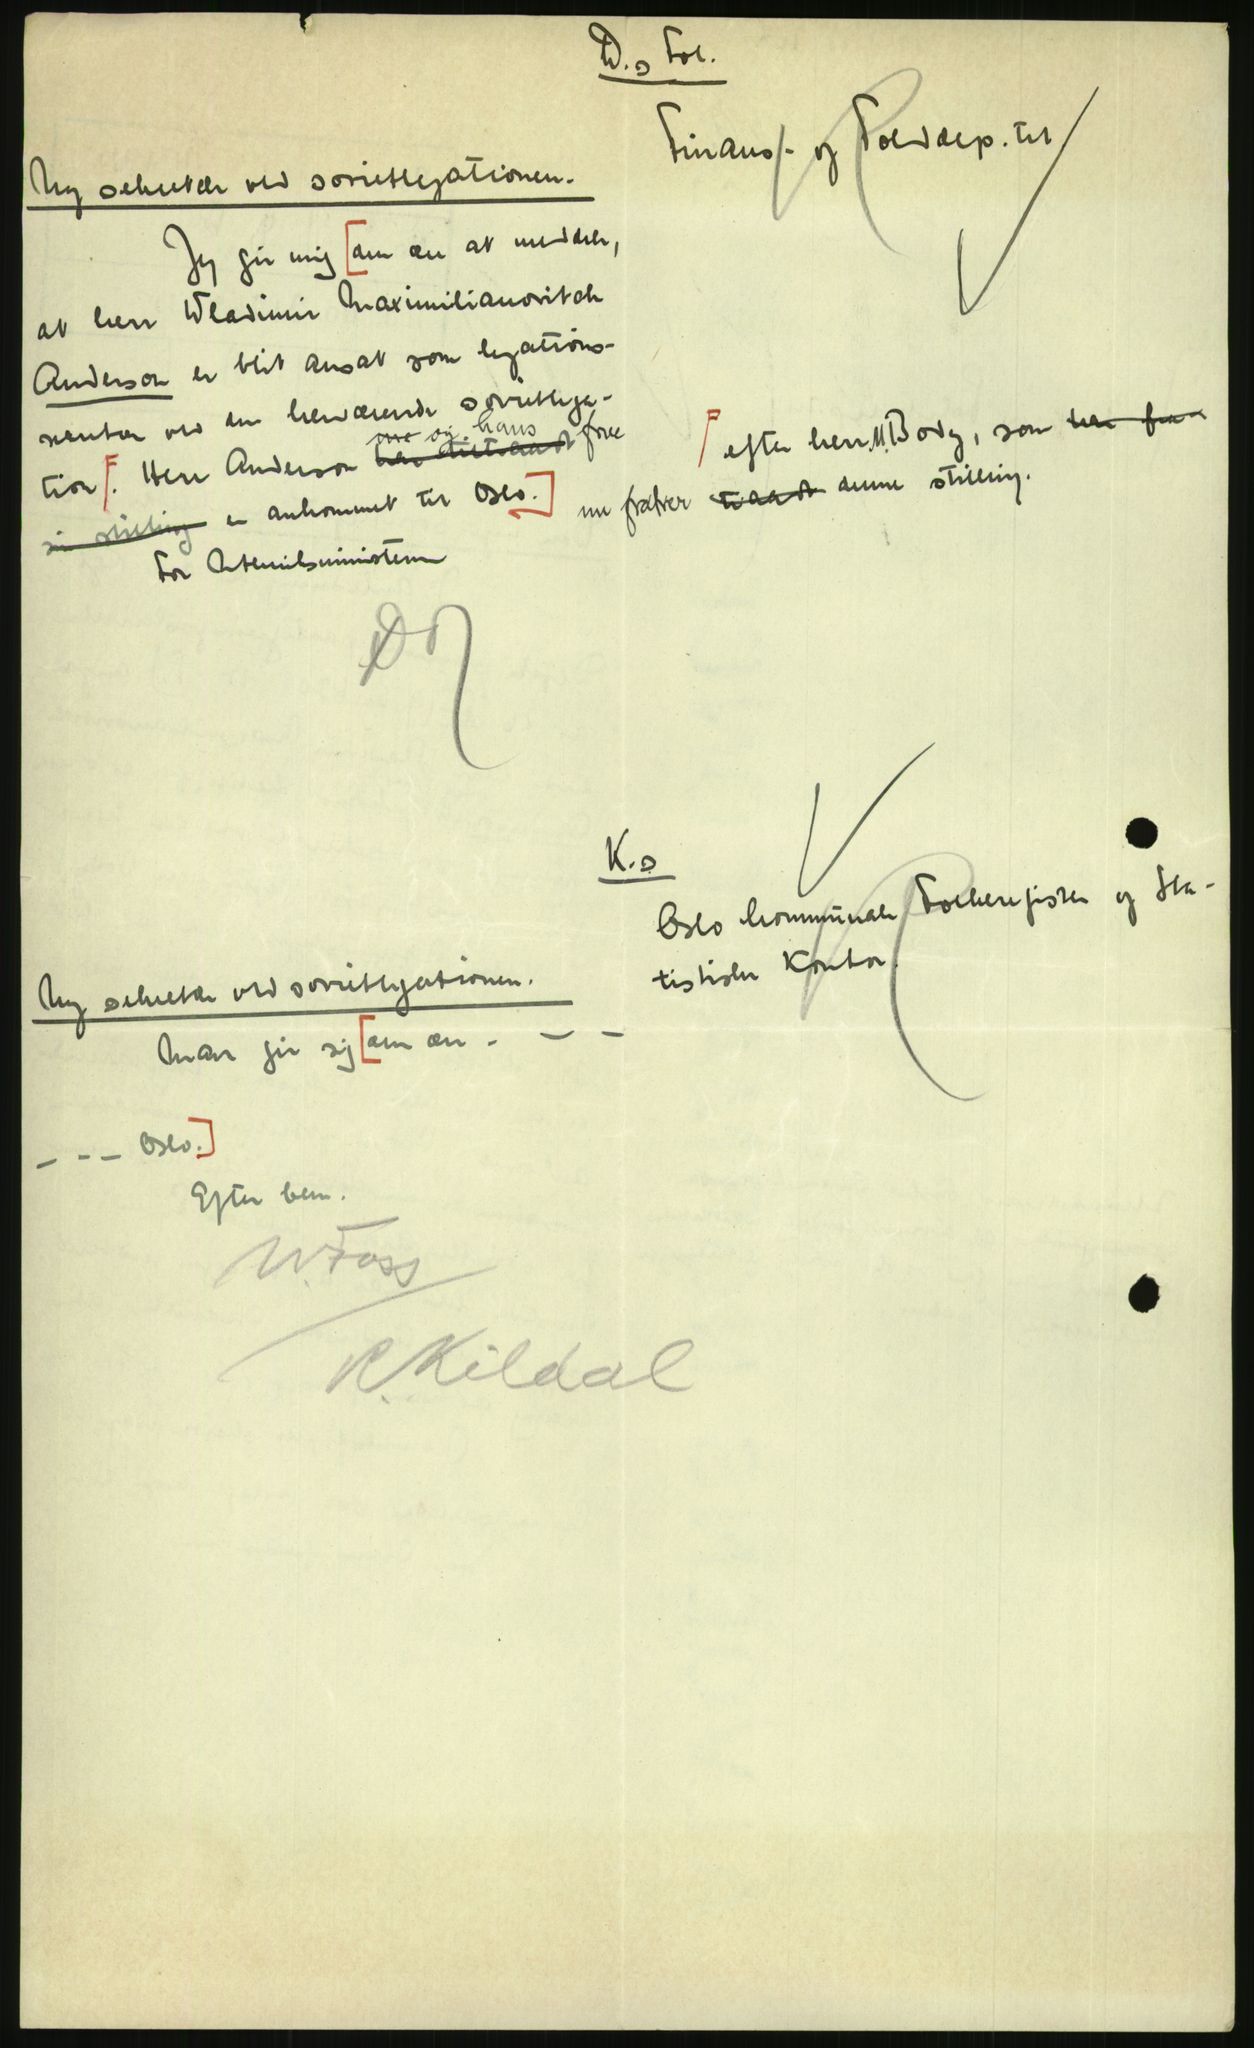 D.s Fol.
Finans- og Tolddep.tet
Ny sekretær ved sovietlegationen.
Jeg gir mig [den ære at meddele,
at herr Wladimir Maximilianovitch
Anderson er blit ansat som legations-
sekretær ved den herværende sovietlega-
tion F. Herr Anderson har tiltraadt
og hans frue
sin stilling er ankommet til Oslo.]
F efter herr M. Body, som har fra
nu fratrer traadt denne stilling.
For Utenriksministeren
K.s
Oslo kommunale Folkeregister og Sta-
tistiske Kontor.
Ny sekretær ved sovietlegationen.
Man gir sig [den ære - - -
- - - Oslo.]
Efter bem.
W. Foss
R. Kildal